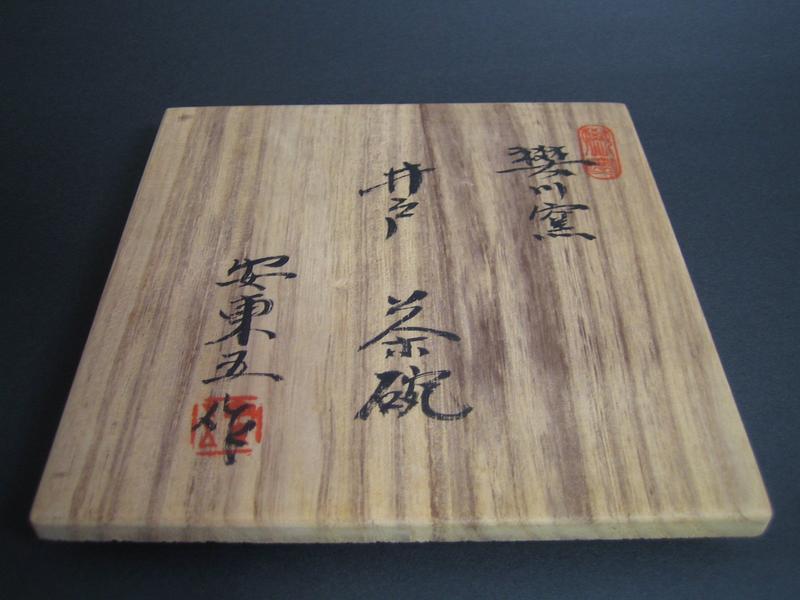 樊川窯
井戸 茶碗
安東五作